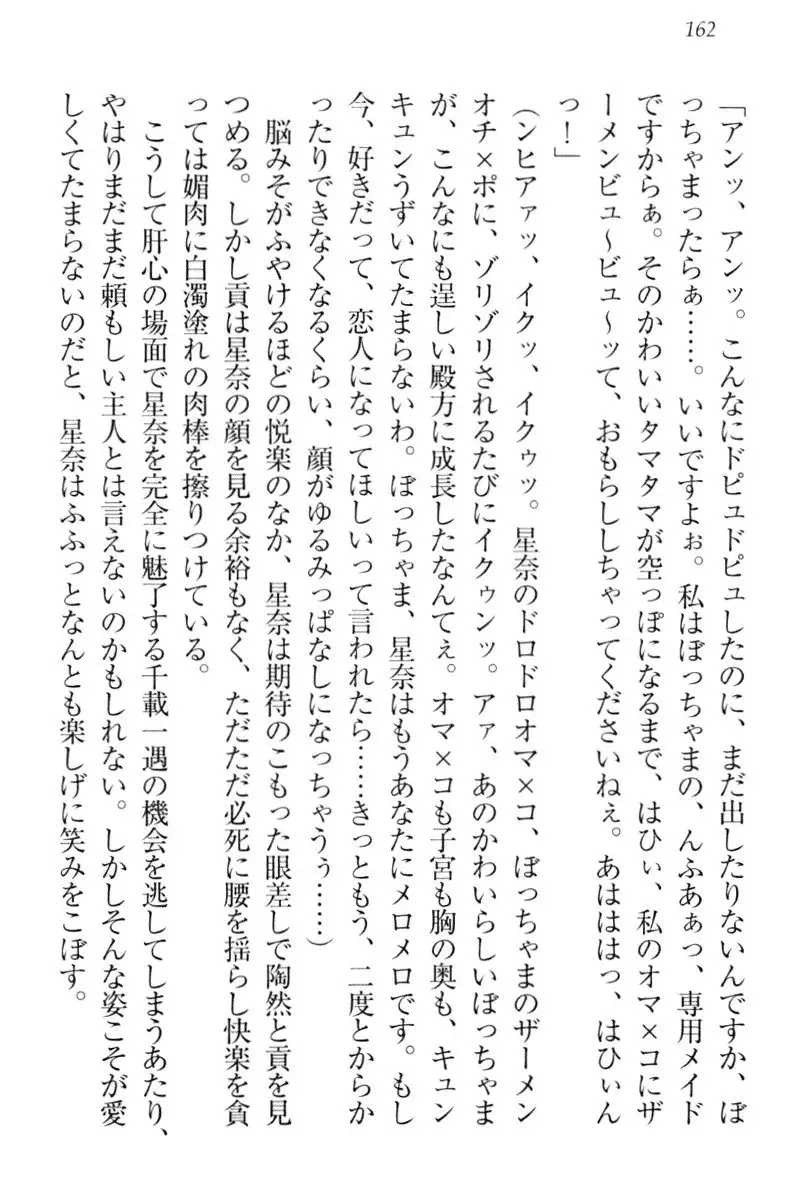 162
「アンッ、アンッ。こんなにドピュドピュしたのに、まだ出したりないんですか、ぼ
っちゃまったらぁ……。いいですよぉ。私はぼっちゃまの、んふあぁっ、専用メイド
ですからぁ。そのかわいいタマタマが空っぽになるまで、はひぃ、私のオマ×コにザ
ーメンビュ～ビュ～ッて、おもらししちゃってくださいねぇ。あはははっ、はひぃん
っ！」
（ンヒアァッ、イクッ、イクゥッ。星奈のドロドロオマ×コ、ぼっちゃまのザーメン
オチ×ポに、ゾリゾリされるたびにイクゥンッ。アァ、あのかわいらしいぼっちゃま
が、こんなにも逞しい殿方に成長したなんてぇ。オマ×コも子宮も胸の奥も、キュン
キュンうずいてたまらないわ。ぼっちゃま、星奈はもうあなたにメロメロです。もし
今、好きだって、恋人になってほしいって言われたら……きっともう、二度とからか
ったりできなくなるくらい、顔がゆるみっぱなしになっちゃうぅ……）
脳みそがふやけるほどの悦楽のなか、星奈は期待のこもった眼差しで陶然と貢を見
つめる。しかし貢は星奈の顔を見る余裕もなく、ただただ必死に腰を揺らし快楽を貪
っては媚肉に白濁塗れの肉棒を擦りつけている。
こうして肝心の場面で星奈を完全に魅了する千載一遇の機会を逃してしまうあたり、
やはりまだまだ頼もしい主人とは言えないのかもしれない。しかしそんな姿こそが愛
しくてたまらないのだと、星奈はふふっとなんとも楽しげに笑みをこぼす。